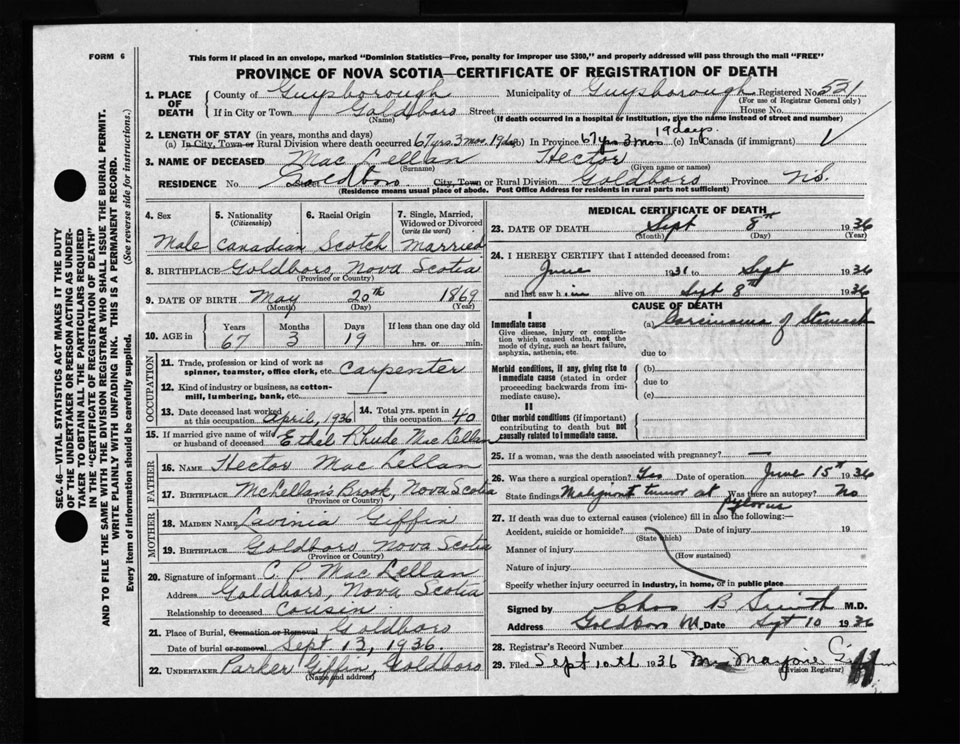 FORM 6
This form if placed in an envelope, marked "Dominion Statistics—Free, penalty for improper use $300," and properly addressed will pass through the mail "FREE"
PROVINCE OF NOVA SCOTIA—CERTIFICATE OF REGISTRATION OF DEATH
1. PLACE OF DEATH
County of Guysborough Municipality of Guysborough Registered No. 521
(For use of Registrar General only)
If in City or Town Goldboro Street House No.
(Name) (If death occurred in a hospital or institution, give the name instead of street and number)
2. LENGTH OF STAY (in years, months and days) 19 days.
(a) In City, Town or Rural Division where death occurred 67 yrs. 3 mos. 19 da (b) In Province 67 yrs 3 mos (c) In Canada (if immigrant)
3. NAME OF DECEASED MacLellan Hector
(Surname) (Given name or names)
RESIDENCE No. Goldboro Street City, Town or Rural Division Goldboro Province N.S.
(Residence means usual place of abode. Post Office Address for residents in rural parts not sufficient)
4. Sex
Male
5. Nationality
(Citizenship)
Canadian
6. Racial Origin
Scotch
7. Single, Married, Widowed or Divorced
(write the word)
Married
8. BIRTHPLACE Goldboro, Nova Scotia
(Province or Country)
9. DATE OF BIRTH May 20th 1869
(Month) (Day) (Year)
10. AGE in
Years Months Days If less than one day old
67 3 19 hrs. or min.
OCCUPATION
11. Trade, profession or kind of work as spinner, teamster, office clerk, etc. Carpenter
12. Kind of industry or business, as cotton-mill, lumbering, bank, etc.
13. Date deceased last worked at this occupation April, 1936
14. Total yrs. spent in this occupation 40
15. If married give name of wife or husband of deceased Ethel Rhude MacLellan
FATHER
16. NAME Hector MacLellan
17. BIRTHPLACE McLellan's Brook, Nova Scotia
(Province or Country)
MOTHER
18. MAIDEN NAME Lavinia Giffin
19. BIRTHPLACE Goldboro Nova Scotia
(Province or Country)
20. Signature of informant C. P. MacLellan
Address Goldboro, Nova Scotia
Relationship to deceased Cousin
21. Place of Burial, Cremation or Removal Goldboro
Date of burial or removal Sept. 13, 1936.
22. UNDERTAKER Parker Giffin, Goldboro
(Name and address)
MEDICAL CERTIFICATE OF DEATH
23. DATE OF DEATH Sept 8th 1936
(Month) (Day) (Year)
24. I HEREBY CERTIFY that I attended deceased from:
June 1931 to Sept 1936
and last saw him alive on Sept 8th 1936
CAUSE OF DEATH
I
Immediate cause
Give disease, injury or complication which caused death, not the mode of dying, such as heart failure, asphyxia, asthenia, etc.
(a) Carcinoma of Stomach
due to
Morbid conditions, if any, giving rise to immediate cause (stated in order proceeding backwards from immediate cause).
(b)
due to
(c)
II
Other morbid conditions (if important) contributing to death but not causally related to immediate cause.
25. If a woman, was the death associated with pregnancy? —
26. Was there a surgical operation? Yes Date of operation June 15th 1936
State findings Malignant tumor at pylorus Was there an autopsy? No
27. If death was due to external causes (violence) fill in also the following:—
Accident, suicide or homicide? Date of injury 19
(State which)
Manner of injury
(How sustained)
Nature of injury
Specify whether injury occurred in industry, in home, or in public place
Signed by Chas B Smith M.D.
Address Goldboro NS Date Sept 10 1936
28. Registrar's Record Number
29. Filed Sept 10th 1936 Mrs Marjorie
(Division Registrar)
SEC. 46—VITAL STATISTICS ACT MAKES IT THE DUTY
OF THE UNDERTAKER OR PERSON ACTING AS UNDER-
TAKER TO OBTAIN ALL THE PARTICULARS REQUIRED
IN THE "CERTIFICATE OF REGISTRATION OF DEATH"
AND TO FILE THE SAME WITH THE DIVISION REGISTRAR WHO SHALL ISSUE THE BURIAL PERMIT.
WRITE PLAINLY WITH UNFADING INK. THIS IS A PERMANENT RECORD.
Every item of information should be carefully supplied. (See reverse side for instructions.)